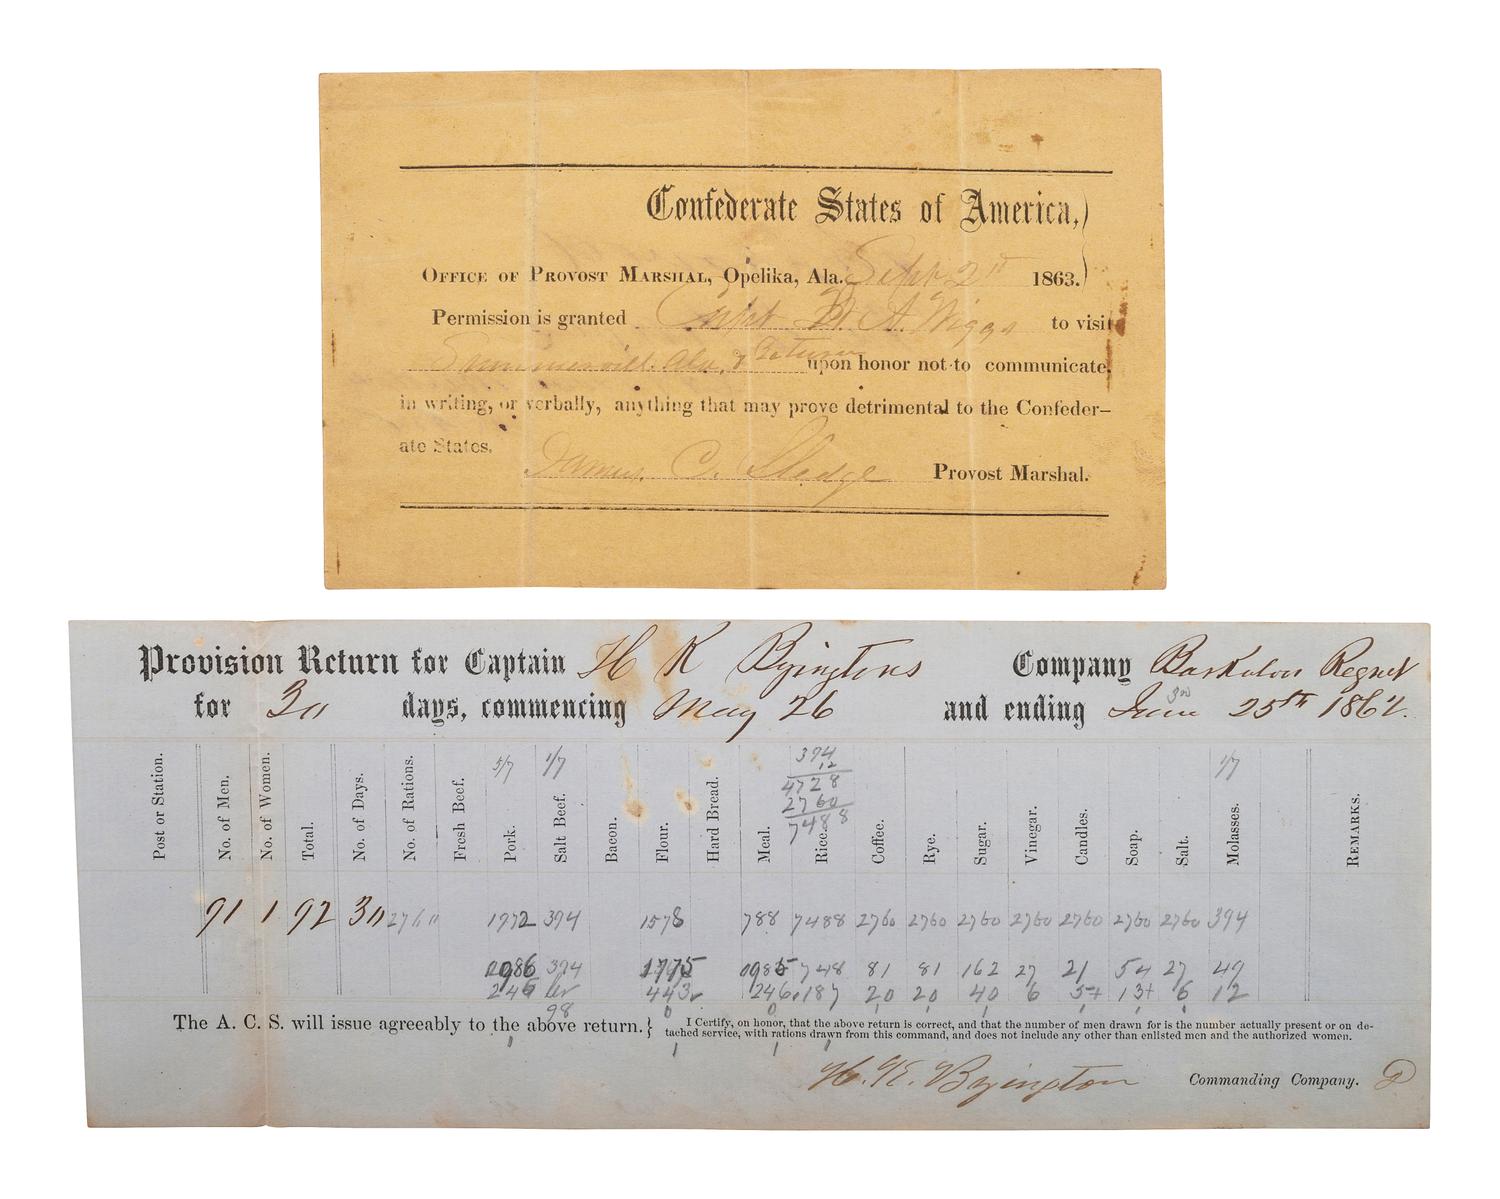 Confederate States of America,
OFFICE OF PROVOST MARSHAL, Opelika, Ala. Sept 2nd 1863.
Permission is granted Capt W. A. Wiggs to visit
Summerville Ala. & Return upon honor not to communicate
in writing, or verbally, anything that may prove detrimental to the Confeder-
ate States.
James C. Sledge Provost Marshal.
Provision Return for Captain H K Byingtons Company Barkuloo Regmt
for 30 days, commencing May 26 and ending June 25th 1862.
Post or Station. No. of Men. No. of Women. Total. No. of Days. No. of Rations. Fresh Beef. Pork. Salt Beef. Bacon. Flour. Hard Bread. Meal. Rice. Coffee. Rye. Sugar. Vinegar. Candles. Soap. Salt. Molasses. REMARKS.
5/7 1/7 1/7
394
12
4728
2760
7488
91 1 92 30 2760 1972 394 1578 788 7488 2760 2760 2760 2760 2760 2760 2760 394
394 1775 985 748 81 81 162 27 21 54 27 49
246 443 246 187 20 20 40 6 5+ 13+ 6 12
98
The A. C. S. will issue agreeably to the above return.} I Certify, on honor, that the above return is correct, and that the number of men drawn for is the number actually present or on de-
tached service, with rations drawn from this command, and does not include any other than enlisted men and the authorized women.
H. K. Byington Commanding Company.